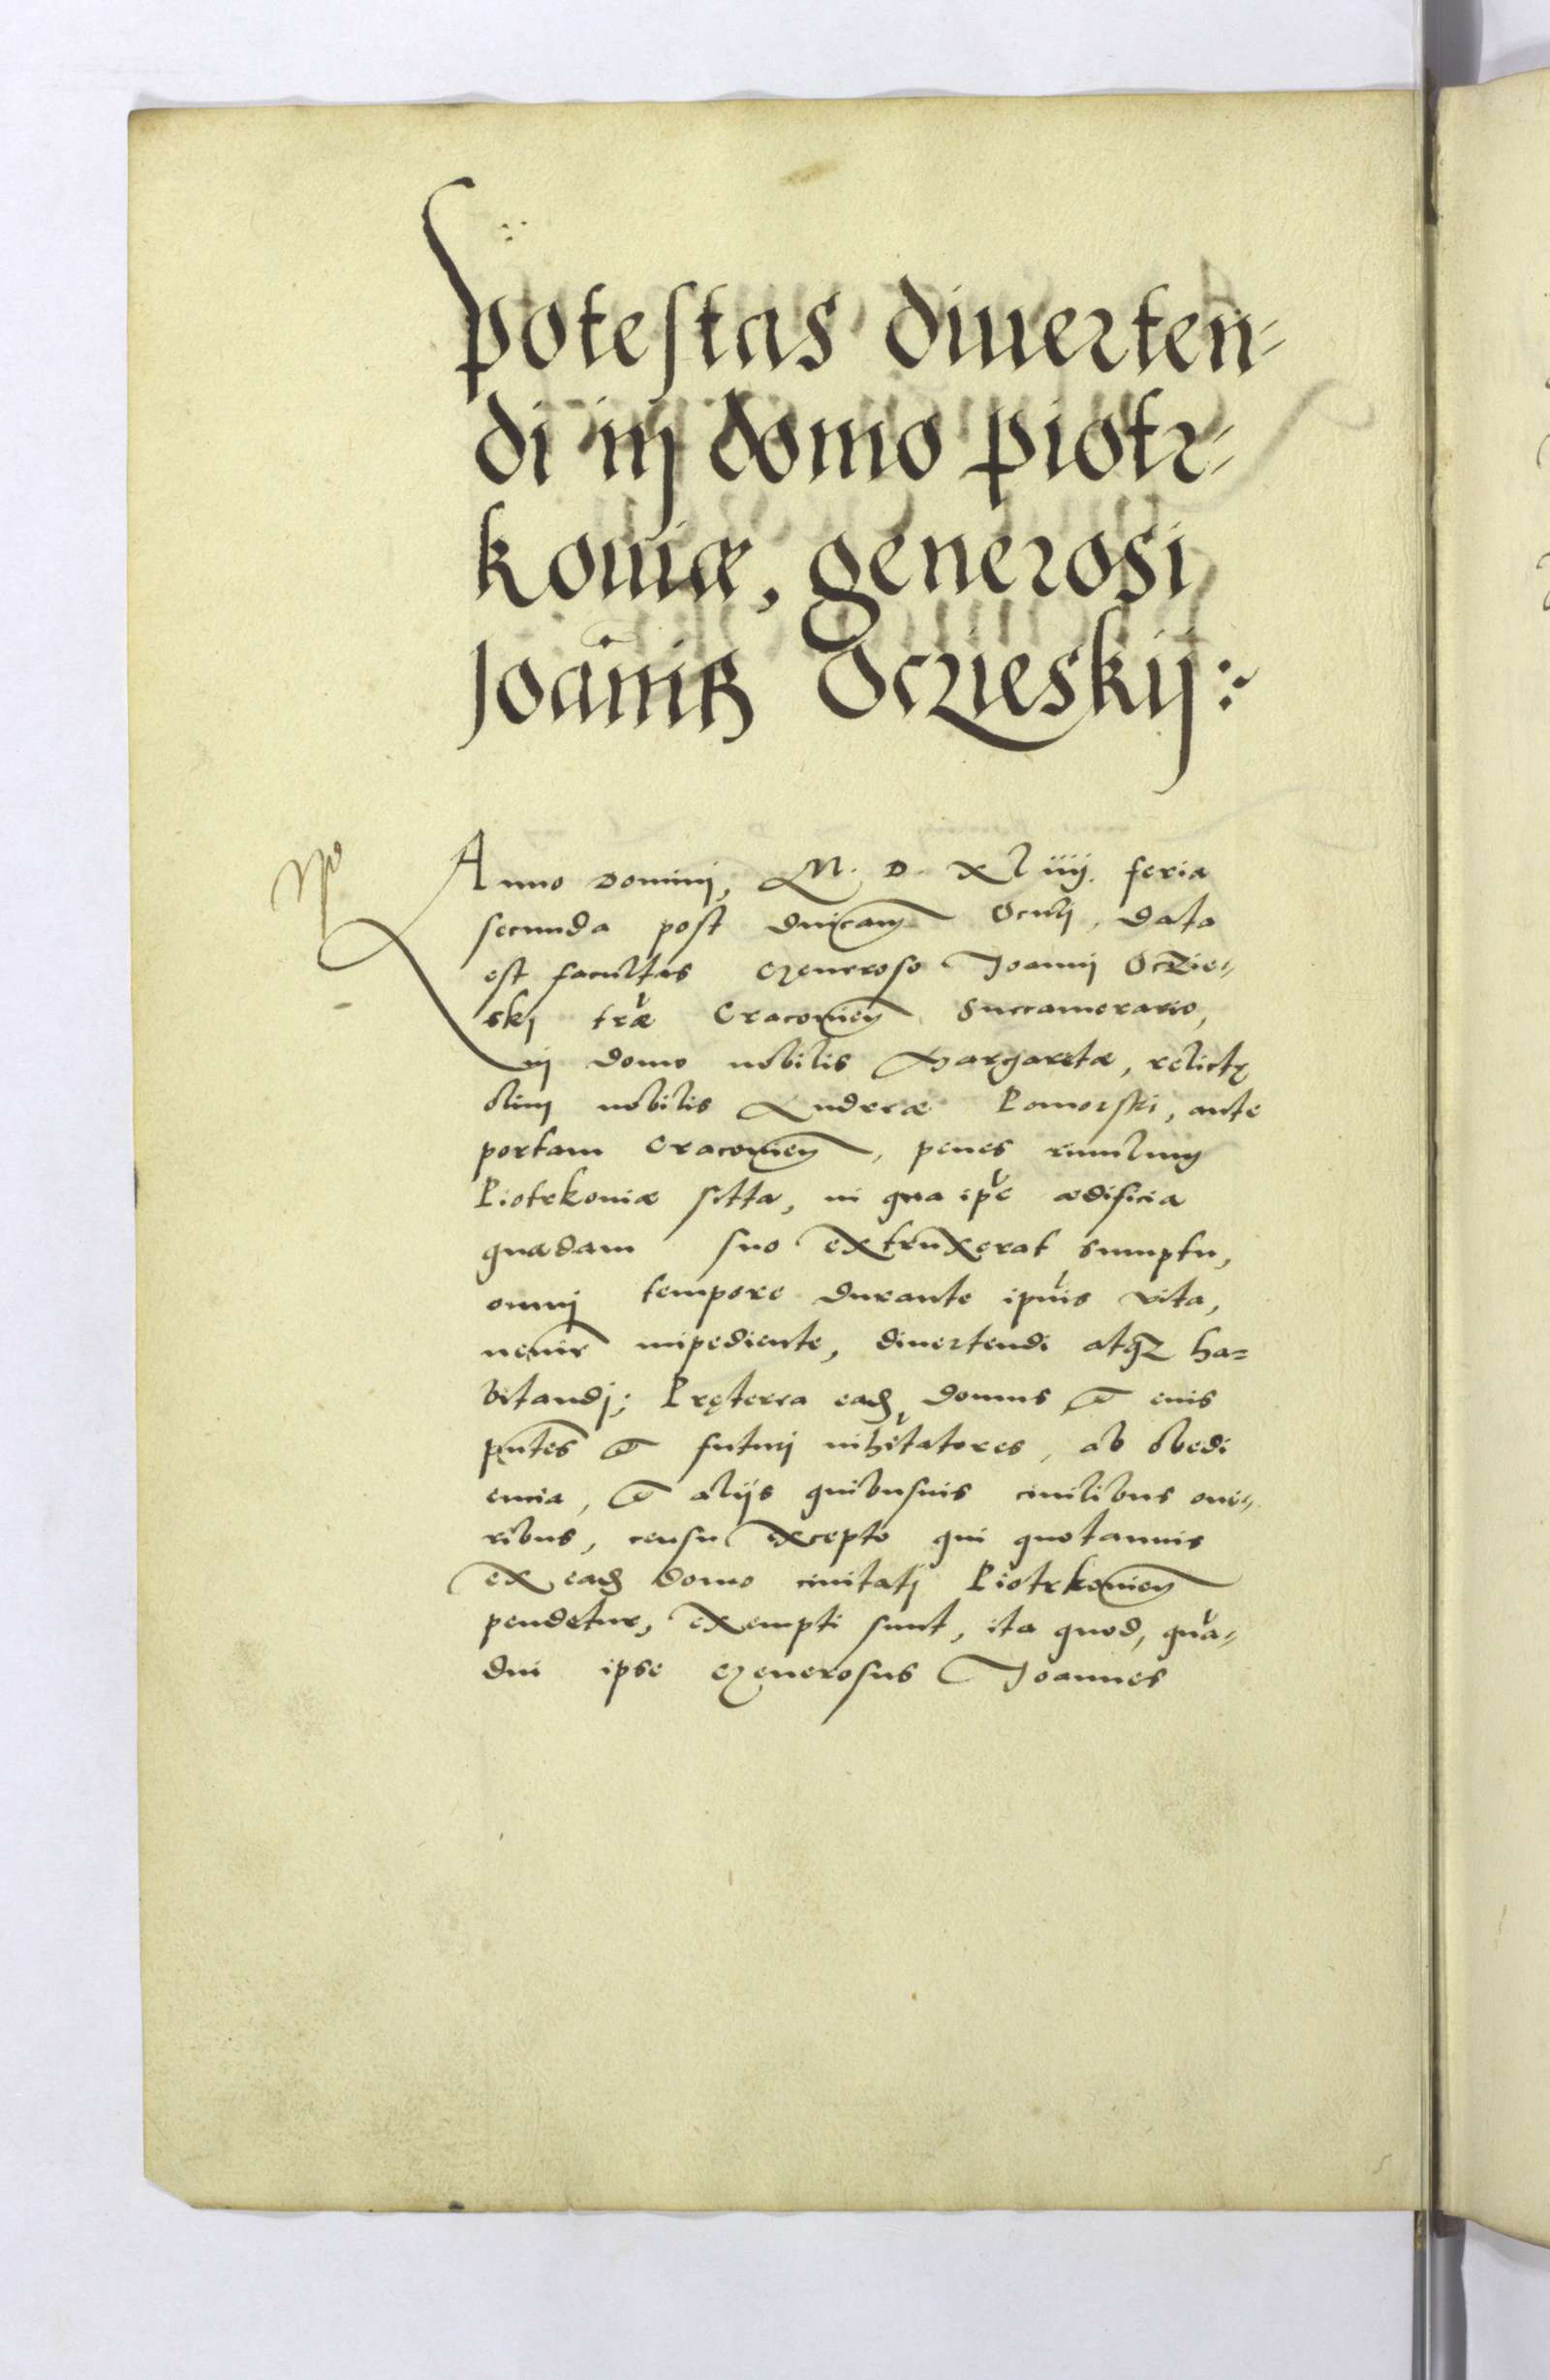 potestas diuerten-
di in domo piotr-
kouiæ, generosi
Joānis Oczieskij:
Anno Dominj, M. D. XLiiij. feria
secunda post dnicam Oculj, data
est facultas Generoso Joannj Oczie-
skj træ Cracouien Succamerario,
in domo nobilis Margaretæ, relictę
olim nobilis Andreæ Pomorski, ante
portam Cracouien, penes riuulum
Piotrkouiæ sitta, in qua ipe ædificia
quædam suo extruxerat sumptu,
omnj tempore durante ipius vita,
nemine impediente, diuertendi atq ha=
bitandj; Pręterea ead domus et eius
pntes et futuri inhitatores, ab obedi
encia, et alijs quibusuis ciuilibus one-
ribus, censu excepto qui quotannis
ex ead domo ciuitatj Piotrkouien
pendetur, exempti sunt, ita quod, qua-
diu ipse Generosus Joannes